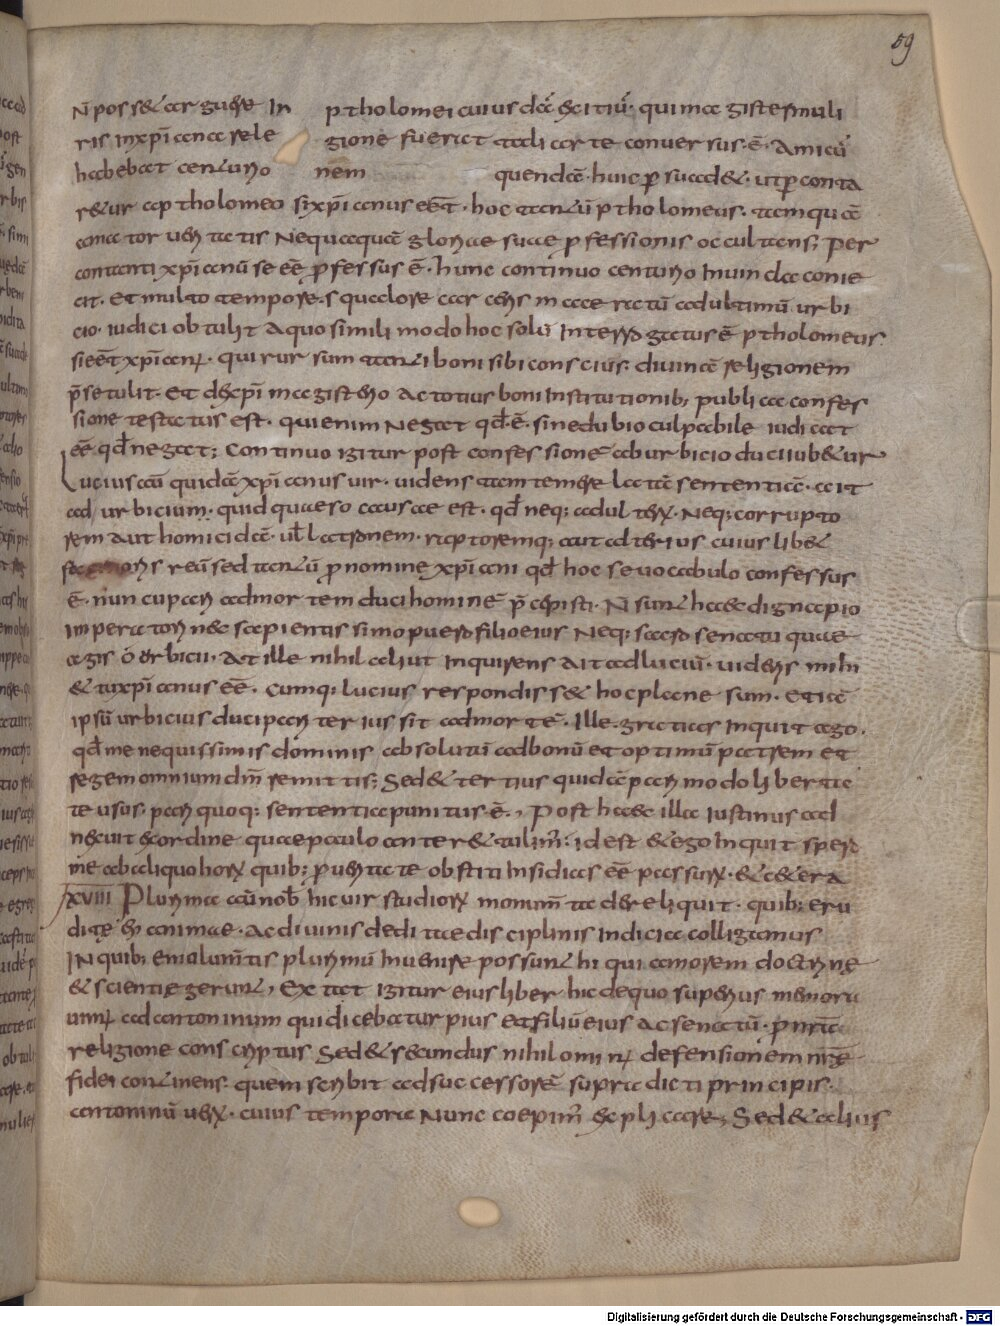 59
N̄ posset arguere In ptholomei cuiusdā exitiū. qui magister muli
ris inxp̄iana rele gione fuerat adliarte conuersus. ē. Amicū
habebat centurio nem quendā. huic p̱ suadet. ut p̱conta
retur aptholomeo sixp̄ianus eēt. hoc tantū ptholomeus. tamquā
amator ueritatis Nequaquā gloriae suae p̱fessionis occultans; Per
contanti xp̄ianū se eē p̱fessus ē. hunc continuo centurio Inuincla conie
cit. Et multo tempore. squalore carceris maceratū adultimū urbi
cio. iudici obtulit Aquo simili modo hoc solū Interrogatus ē ptholomeus
sieēt xp̄ianus. qui rursum tanti boni sibi conscius. diuinā religionem
p̄setulit. Et dexp̄i magisterio Actotius boni Institutionib; publica confes
sione testatus est. qui enim Negat qd̄. ē. sinedubio culpabile iudicat
eē qd̄ negat; Continuo igitur post confessionē aburbicio duci iubetur
Lucius aūi quidā xp̄ianus uir. uidens tam temere latā sententiā. ait
ad urbicium. quid quaeso causae est. qd̄ neq; adulterū. Neq; corrupto
rem Aut homicidā. ul̄ latronem. raptoremq; aut alterius cuius libet
facinoris reū sed tantū p̱ nomine xp̄iani qd̄ hoc se uocabulo confessus
ē. nuncupari admortem duci hominē p̄cepisti. N̄ sunt haec digna pio
Imperatori nec sapientis simo puero filio eius Neq; sacro senatu quae
agis ó orbicii. At ille nihil aliut Inquirens Ait adluciū. uideris mihi
et tu xp̄ianus eē. Cumq; lucius respondisset hoc plane sum. Etiā
ipsū urbicius duci pariter iussit admortē. Ille. gratias Inquit ago.
qd̄ me nequissimis dominis absolutū adbonū et optimū patrem et
regem omnium dm̄ remittis; Sed et tertius quidā pari modo liberta
te usus. pari quoq; sententia punitus. ē., Post haec illa Iustinus ad
nectit exordine quae paulo ante retulim̄. id est et ego Inquit spero
me ab aliquo horum quib; p̱ ueritate obstiti Insidias eē passurum. et cetera
XVIII Plurima aūt nob̄ hic uir studiorum monimenta dereliquit. quib; eru
ditę eius animae. Acdiuinis deditae disciplinis Indicia colligamus
IN quib; emolumentis plurimū Inuenire possunt hi qui amorem doctrinę
et scientię gerunt, Extat igitur eius liber hic dequo superius memora
uimus ad antoninum qui dicebatur pius et filiū eius Acsenatū. p̱ nr̄a
religione conscriptus Sed et secundus nihilominus defensionem nr̄ę
fidei continens. quem scribit adsuccessorē supra dicti principis.
antoninū uerum. cuius tempora Nunc coepim̄ explicare; Sed et alius
Digitalisierung gefördert durch die Deutsche Forschungsgemeinschaft - DFG